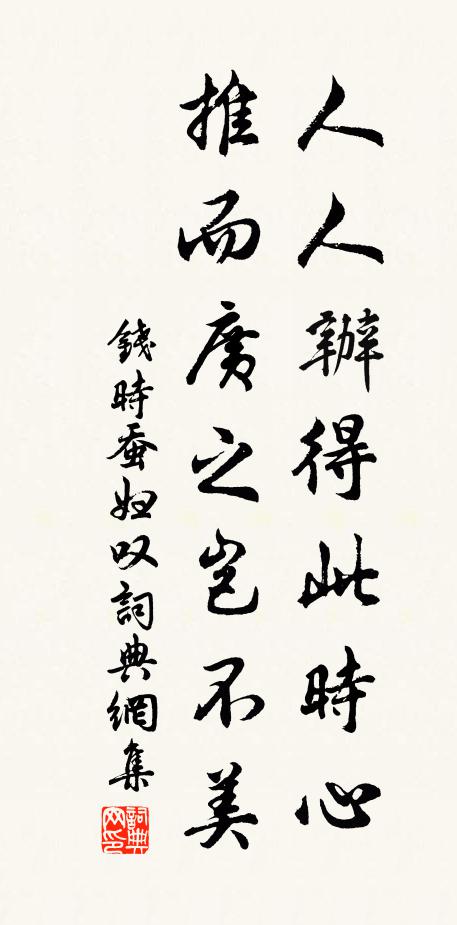 人人辦得此時心
推而廣之豈不美
錢時蚕婦叹詞典網集
詞典网印